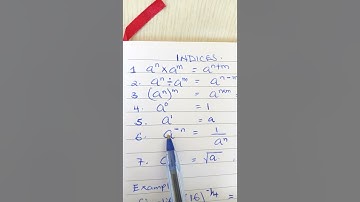 INDICES.
1. aⁿ × aᵐ = aⁿ⁺ᵐ
2. aⁿ ÷ aᵐ = aⁿ⁻ᵐ
3 (aⁿ)ᵐ = aⁿˣᵐ
4. a⁰ = 1
5. a¹ = a
6. a⁻ⁿ = 1/aⁿ
7. = √a
Exampl